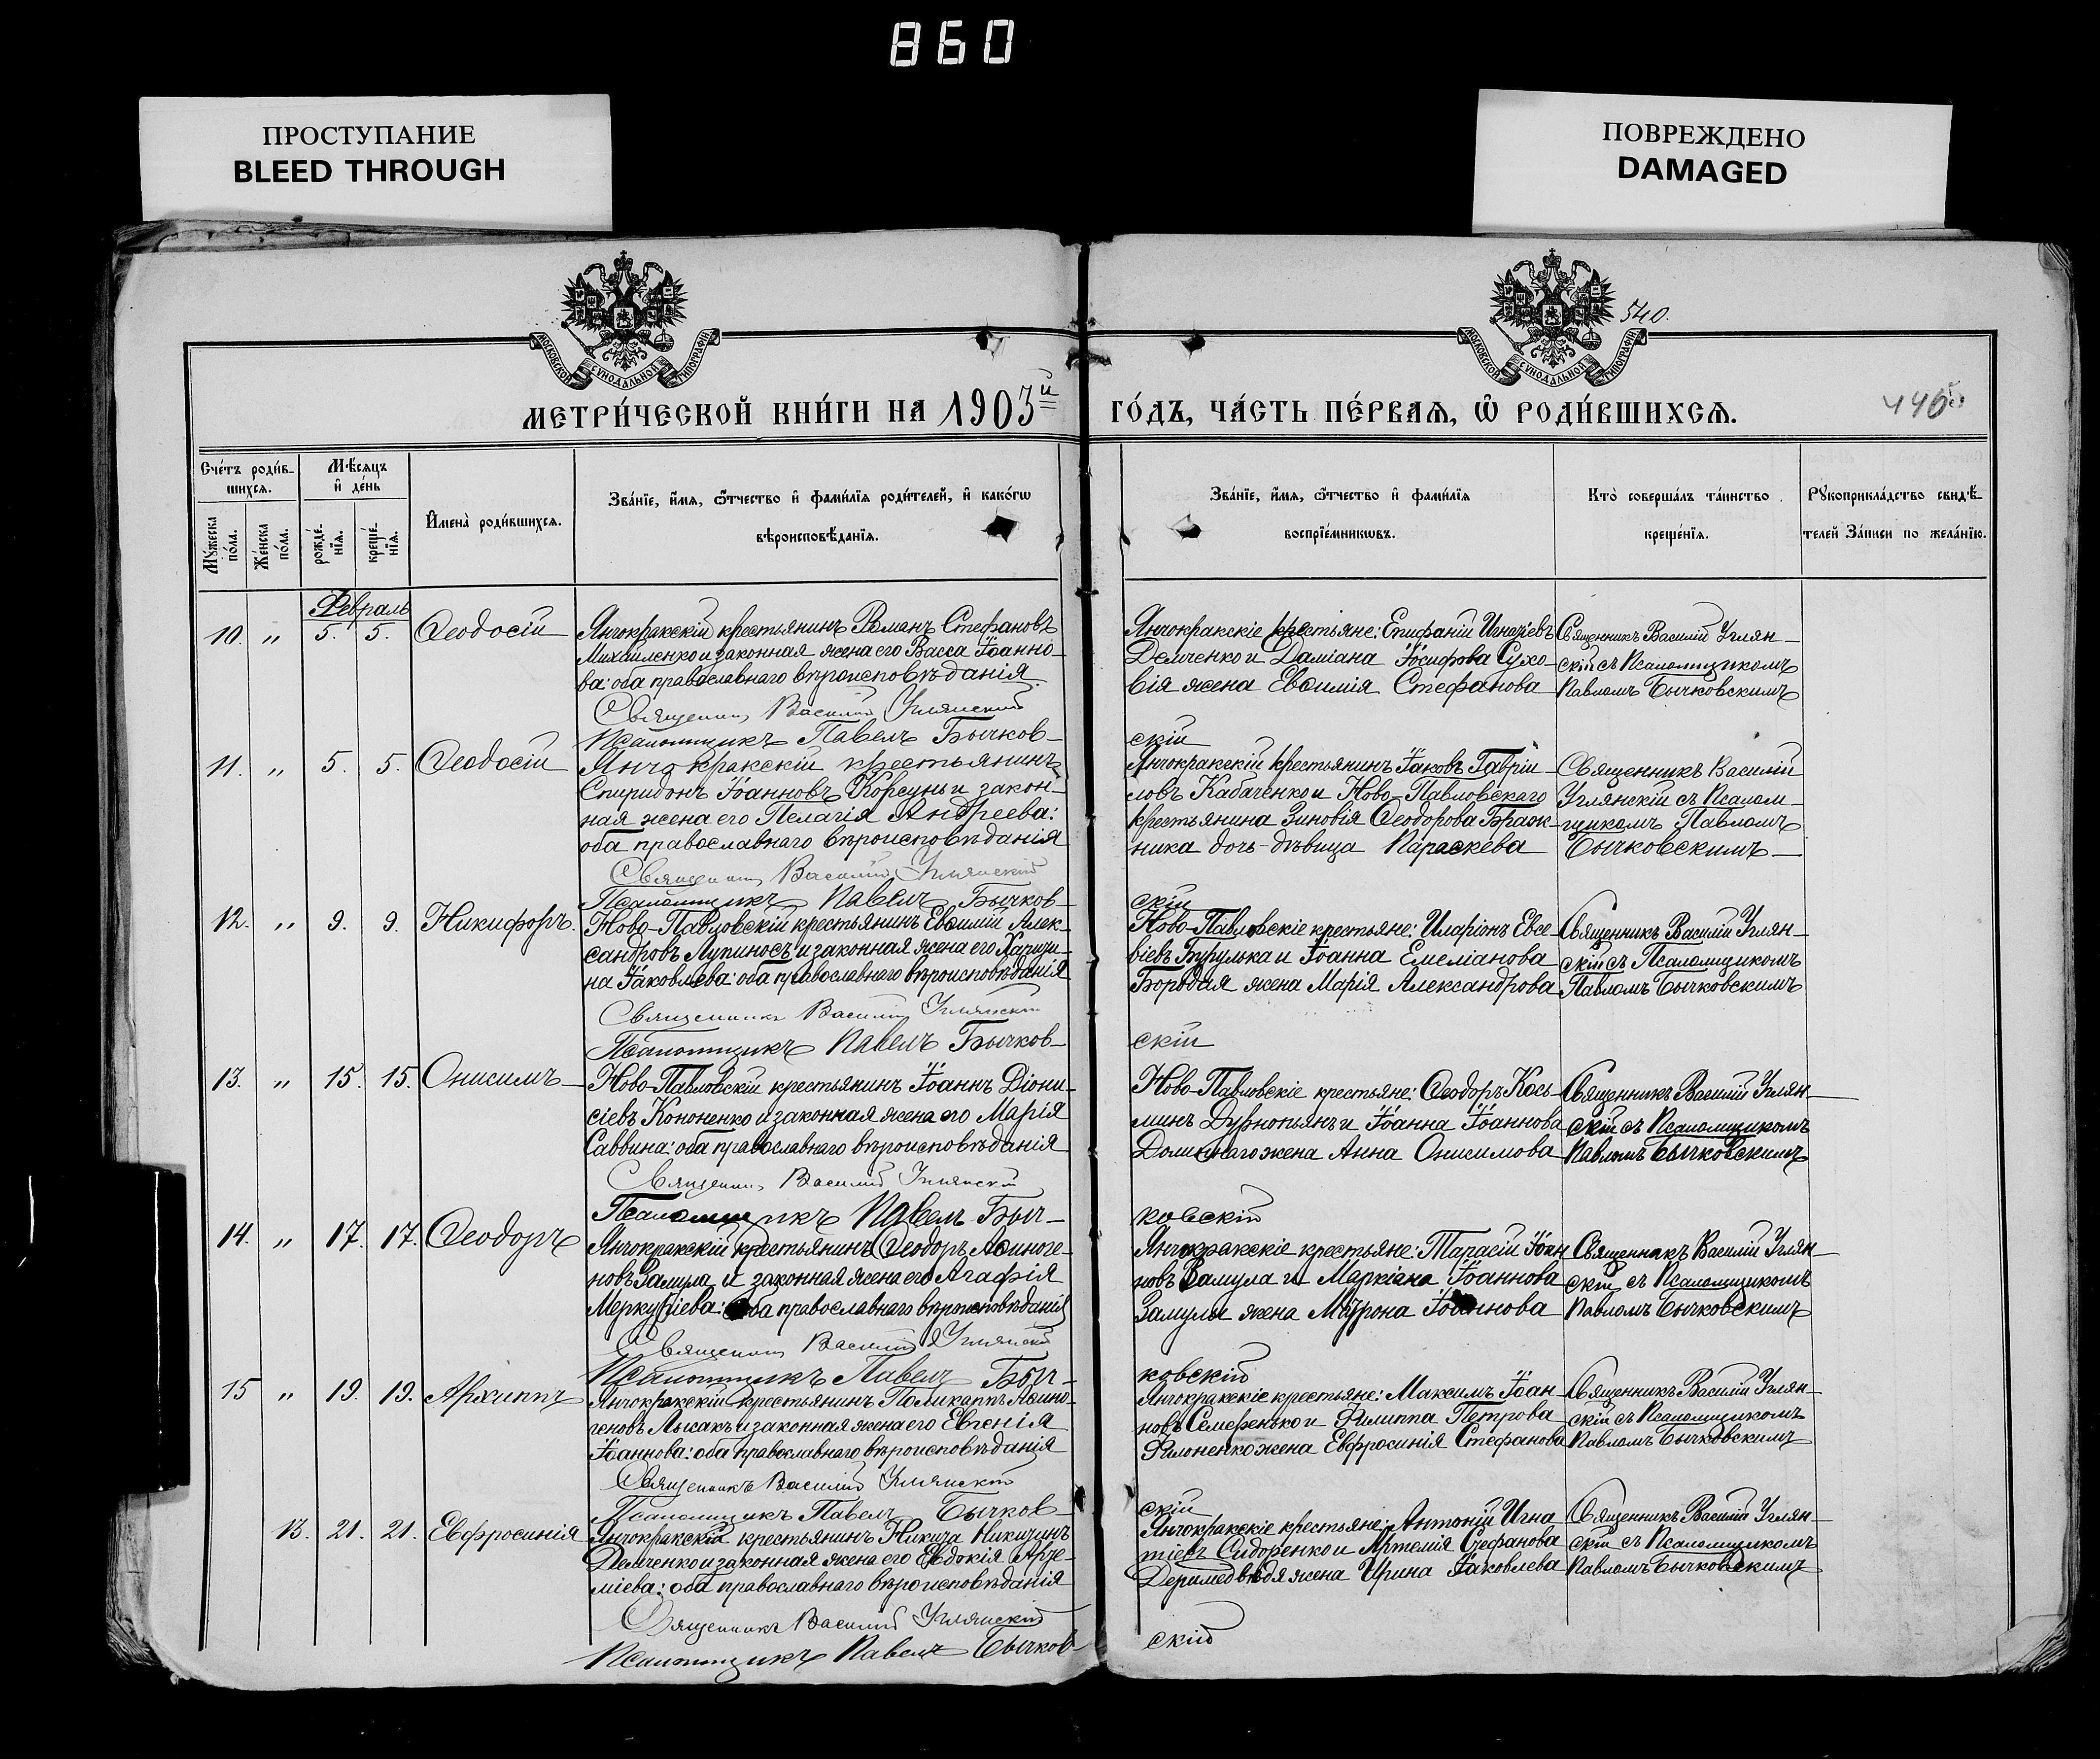 860
ПРОСТУПАНИЕ
BLEED THROUGH
ПОВРЕЖДЕНО
DAMAGED
МОСКОВСКОЙ СѴНОДАЛЬНОЙ ТИПОГРАФІИ
МОСКОВСКОЙ СѴНОДАЛЬНОЙ ТИПОГРАФІИ
540.
МЕТРИ́ЧЕСКОЙ КНИ́ГИ НА 1903й ГО́ДЪ, ЧА́СТЬ ПЕ́РВАѦ, Ѡ҆ РОДИ́ВШИХСѦ.
Сче́тъ роди́в-
шихсѧ.
Мꙋ́жеска по́ла.
Же́нска по́ла.
Мѣ́сѧцъ
и҆ де́нь
рожде́-
нїѧ.
креще́-
нїѧ.
И҆мена̀ роди́вшихсѧ.
Зва́нїе, и҆́мѧ, ѻ҆́тчество и҆ фами́лїѧ роди́телей, и҆ како́гѡ
вѣроисповѣ́данїѧ.
Зва́нїе, и҆́мѧ, ѻ҆́тчество и҆ фами́лїѧ
воспрїе́мникѡвъ.
Кто̀ соверша́лъ та́инство
креще́нїѧ.
Рꙋкоприкла́дство свидѣ́-
телей За́писи по жела́нїю.
Февраль
10. „ 5. 5. Ѳеодосій
Янчокракскій крестьянинъ Романъ Стефановъ
Михайленко и законная жена его Васса Іоанно-
ва: оба православнаго вѣроисповѣданія
Священникъ Василій Углянскій
Псаломщикъ Павелъ Бычков-
скій
Янчокракскіе крестьяне: Епифаній Игнатіевъ
Демченко и Даміана Іосифова Сухо-
вія жена Евѳимія Стефанова
Священникъ Василій Углян-
скій съ Псаломщикомъ
Павломъ Бычковскимъ
11. „ 5. 5. Ѳеодосій
Янчокракскій крестьянинъ
Спиридонъ Іоанновъ Корсунь и закон-
ная жена его Пелагія Андреева:
оба православнаго вѣроисповѣданія
Священникъ Василій Углянскій
Псаломщикъ Павелъ Бычков-
скій
Янчокракскій крестьянинъ Іаковъ Гавріи-
ловъ Кабаченко и Ново-Павловскаго
крестьянина Зиновія Ѳеодорова Браж-
ника дочь-дѣвица Параскева
Священникъ Василій
Углянскій съ Псалом-
щикомъ Павломъ
Бычковскимъ
12. „ 9. 9. Никифоръ.
Ново-Павловскій крестьянинъ Евѳимій Алек-
сандровъ Лупиносъ и законная жена его Харити-
на Іаковлева: оба православнаго вѣроисповѣданія
Священникъ Василій Углянскій
Псаломщикъ Павелъ Бычков-
скій
Ново-Павловскіе крестьяне: Иларіонъ Евсе-
віевъ Бурулька и Іоанна Емеліанова
Бородая жена Марія Александрова
Священникъ Василій Углян-
скій съ Псаломщикомъ
Павломъ Бычковскимъ
13. „ 15. 15. Онисимъ
Ново-Павловскій крестьянинъ Іоаннъ Діони-
сіевъ Кононенко и законная жена его Марія
Саввина: оба православнаго вѣроисповѣданія
Священникъ Василій Углянскій
Псаломщикъ Павелъ Быч-
ковскій
Ново-Павловскіе крестьяне: Ѳеодоръ Кось-
минъ Дурнопьянъ и Іоанна Іоаннова
жена Анна Онисимова
Священникъ Василій Углян-
скій съ Псаломщикомъ
Павломъ Бычковскимъ
14. „ 17. 17. Ѳеодоръ
Янчокракскій крестьянинъ Ѳеодоръ Аѳиноге-
новъ Замула и законная жена его Агафія
Меркуріева: оба православнаго вѣроисповѣданія
Священникъ Василій Углянскій
Псаломщикъ Павелъ Быч-
ковскій
Янчокракскіе крестьяне: Тарасій Іоан
новъ Замула и Маркіана Іоаннова
Замулы жена Матрона Іоаннова
Священникъ Василій Углян-
скій съ Псаломщикомъ
Павломъ Бычковскимъ
15 „ 19. 19. Архиппъ
Янчокракскій крестьянинъ Поликарпъ Аѳино-
геновъ Лысакъ и законная жена его Евгенія
Іоаннова: оба православнаго вѣроисповѣданія
Священникъ Василій Углянскій
Псаломщикъ Павелъ Бычков-
скій
Янчокракскіе крестьяне: Максимъ Іоан-
новъ Семеренько и Филиппа Петрова
Филоненко жена Евфросинія Стефанова
Священникъ Василій Углян-
скій съ Псаломщикомъ
Павломъ Бычковскимъ
13. 21. 21. Евфросинія
Янчокракскій крестьянинъ Никита Никитинъ
Демченко и законная жена его Евдокія Арте-
міева: оба православнаго вѣроисповѣданія
Священникъ Василій Углянскій
Псаломщикъ Павелъ Бычков-
скій
Янчокракскіе крестьяне: Антоній Игна
тіевъ Сидоренко и Артемія Стефанова
Деримедвѣдя жена Ирина Іаковлева
Священникъ Василій Углян-
скій съ Псаломщикомъ
Павломъ Бычковскимъ